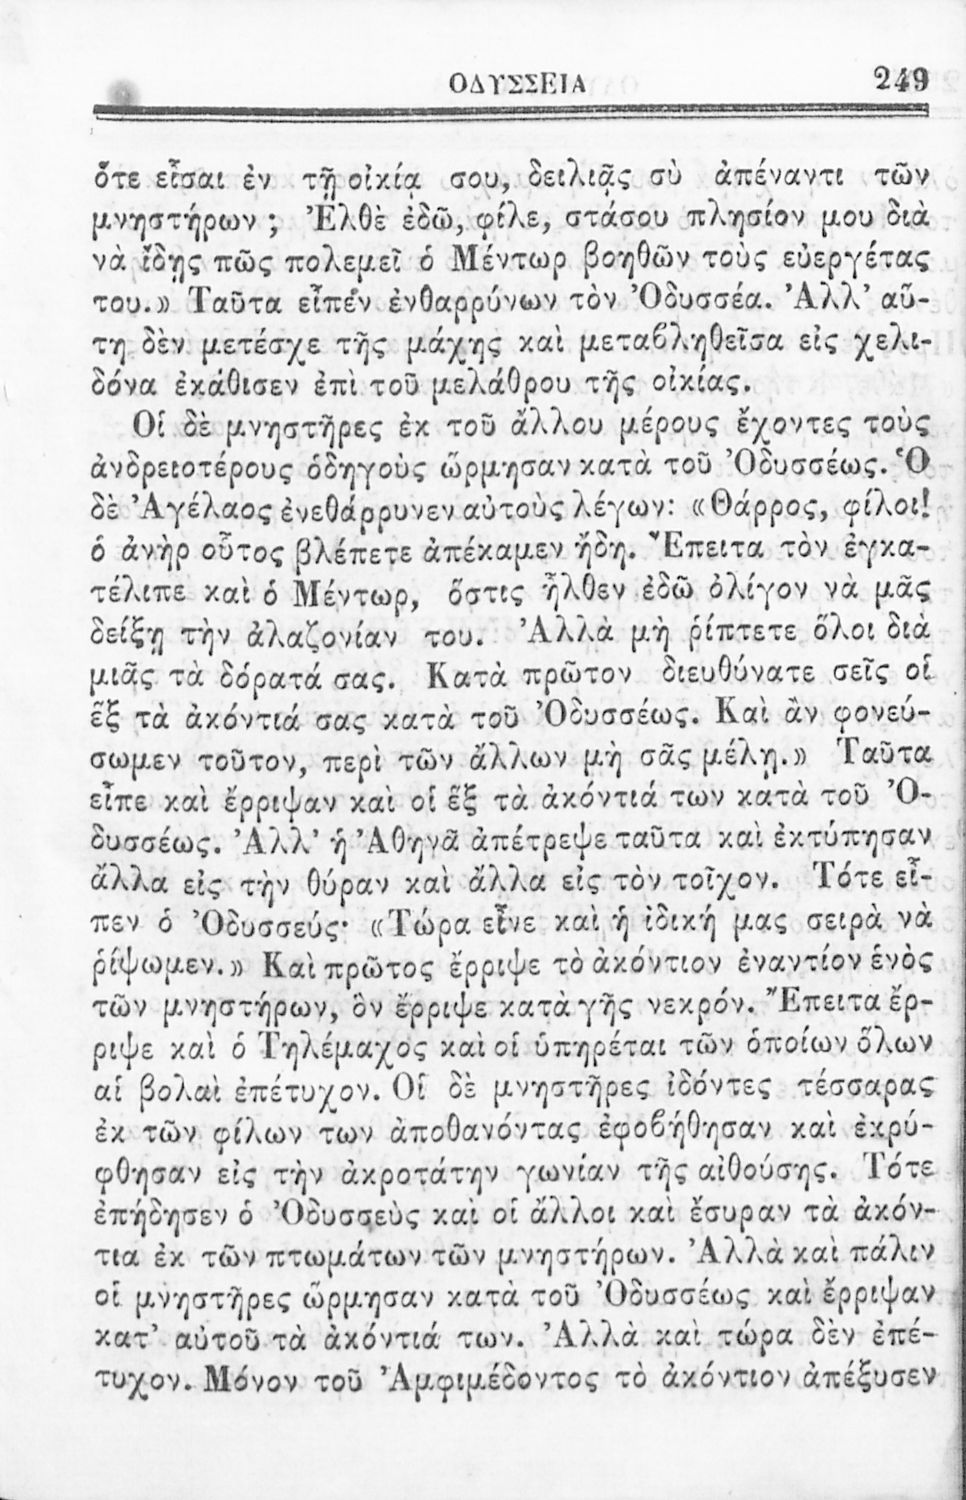 ΟΔΥΣΣΕΙΑ 249
ὅτε εἶσαι ἐν τῇ οἰκίᾳ σου, δειλιᾷς σὺ ἀπέναντι τῶν
μνηστήρων ; Ἐλθὲ ἐδῶ, φίλε, στάσου πλησίον μου διὰ
νὰ ἴδῃς πῶς πολεμεῖ ὁ Μέντωρ βοηθῶν τοὺς εὐεργέτας
του.» Ταῦτα εἶπεν ἐνθαρρύνων τὸν Ὀδυσσέα. Ἀλλ’ αὕ-
τη δὲν μετέσχε τῆς μάχης καὶ μεταβληθεῖσα εἰς χελι-
δόνα ἐκάθισεν ἐπὶ τοῦ μελάθρου τῆς οἰκίας.
Οἱ δὲ μνηστῆρες ἐκ τοῦ ἄλλου μέρους ἔχοντες τοὺς
ἀνδρειοτέρους ὁδηγοὺς ὥρμησαν κατὰ τοῦ Ὀδυσσέως. Ὁ
δὲ Ἀγέλαος ἐνεθάρρυνεν αὐτοὺς λέγων: «Θάρρος, φίλοι!
ὁ ἀνὴρ οὗτος βλέπετε ἀπέκαμεν ἤδη. Ἔπειτα τὸν ἐγκα-
τέλιπε καὶ ὁ Μέντωρ, ὅστις ἦλθεν ἐδῶ ὀλίγον νὰ μᾶς
δείξῃ τὴν ἀλαζονίαν του. Ἀλλὰ μὴ ῥίπτετε ὅλοι διὰ
μιᾶς τὰ δόρατά σας. Κατὰ πρῶτον διευθύνατε σεῖς οἱ
ἓξ τὰ ἀκόντιά σας κατὰ τοῦ Ὀδυσσέως. Καὶ ἂν φονεύ-
σωμεν τοῦτον, περὶ τῶν ἄλλων μὴ σᾶς μέλῃ.» Ταῦτα
εἶπε καὶ ἔρριψαν καὶ οἱ ἓξ τὰ ἀκόντιά των κατὰ τοῦ Ὀ-
δυσσέως. Ἀλλ’ ἡ Ἀθηνᾶ ἀπέτρεψε ταῦτα καὶ ἐκτύπησαν
ἄλλα εἰς τὴν θύραν καὶ ἄλλα εἰς τὸν τοῖχον. Τότε εἶ-
πεν ὁ Ὀδυσσεύς· «Τώρα εἶνε καὶ ἡ ἰδική μας σειρὰ νὰ
ῥίψωμεν.» Καὶ πρῶτος ἔρριψε τὸ ἀκόντιον ἐναντίον ἑνὸς
τῶν μνηστήρων, ὃν ἔρριψε κατὰ γῆς νεκρόν. Ἔπειτα ἔρ-
ριψε καὶ ὁ Τηλέμαχος καὶ οἱ ὑπηρέται τῶν ὁποίων ὅλων
αἱ βολαὶ ἐπέτυχον. Οἱ δὲ μνηστῆρες ἰδόντες τέσσαρας
ἐκ τῶν φίλων των ἀποθανόντας ἐφοβήθησαν καὶ ἐκρύ-
φθησαν εἰς τὴν ἀκροτάτην γωνίαν τῆς αἰθούσης. Τότε
ἐπήδησεν ὁ Ὀδυσσεὺς καὶ οἱ ἄλλοι καὶ ἔσυραν τὰ ἀκόν-
τια ἐκ τῶν πτωμάτων τῶν μνηστήρων. Ἀλλὰ καὶ πάλιν
οἱ μνηστῆρες ὥρμησαν κατὰ τοῦ Ὀδυσσέως καὶ ἔρριψαν
κατ’ αὐτοῦ τὰ ἀκόντιά των. Ἀλλὰ καὶ τώρα δὲν ἐπέ-
τυχον. Μόνον τοῦ Ἀμφιμέδοντος τὸ ἀκόντιον ἀπέξυσεν